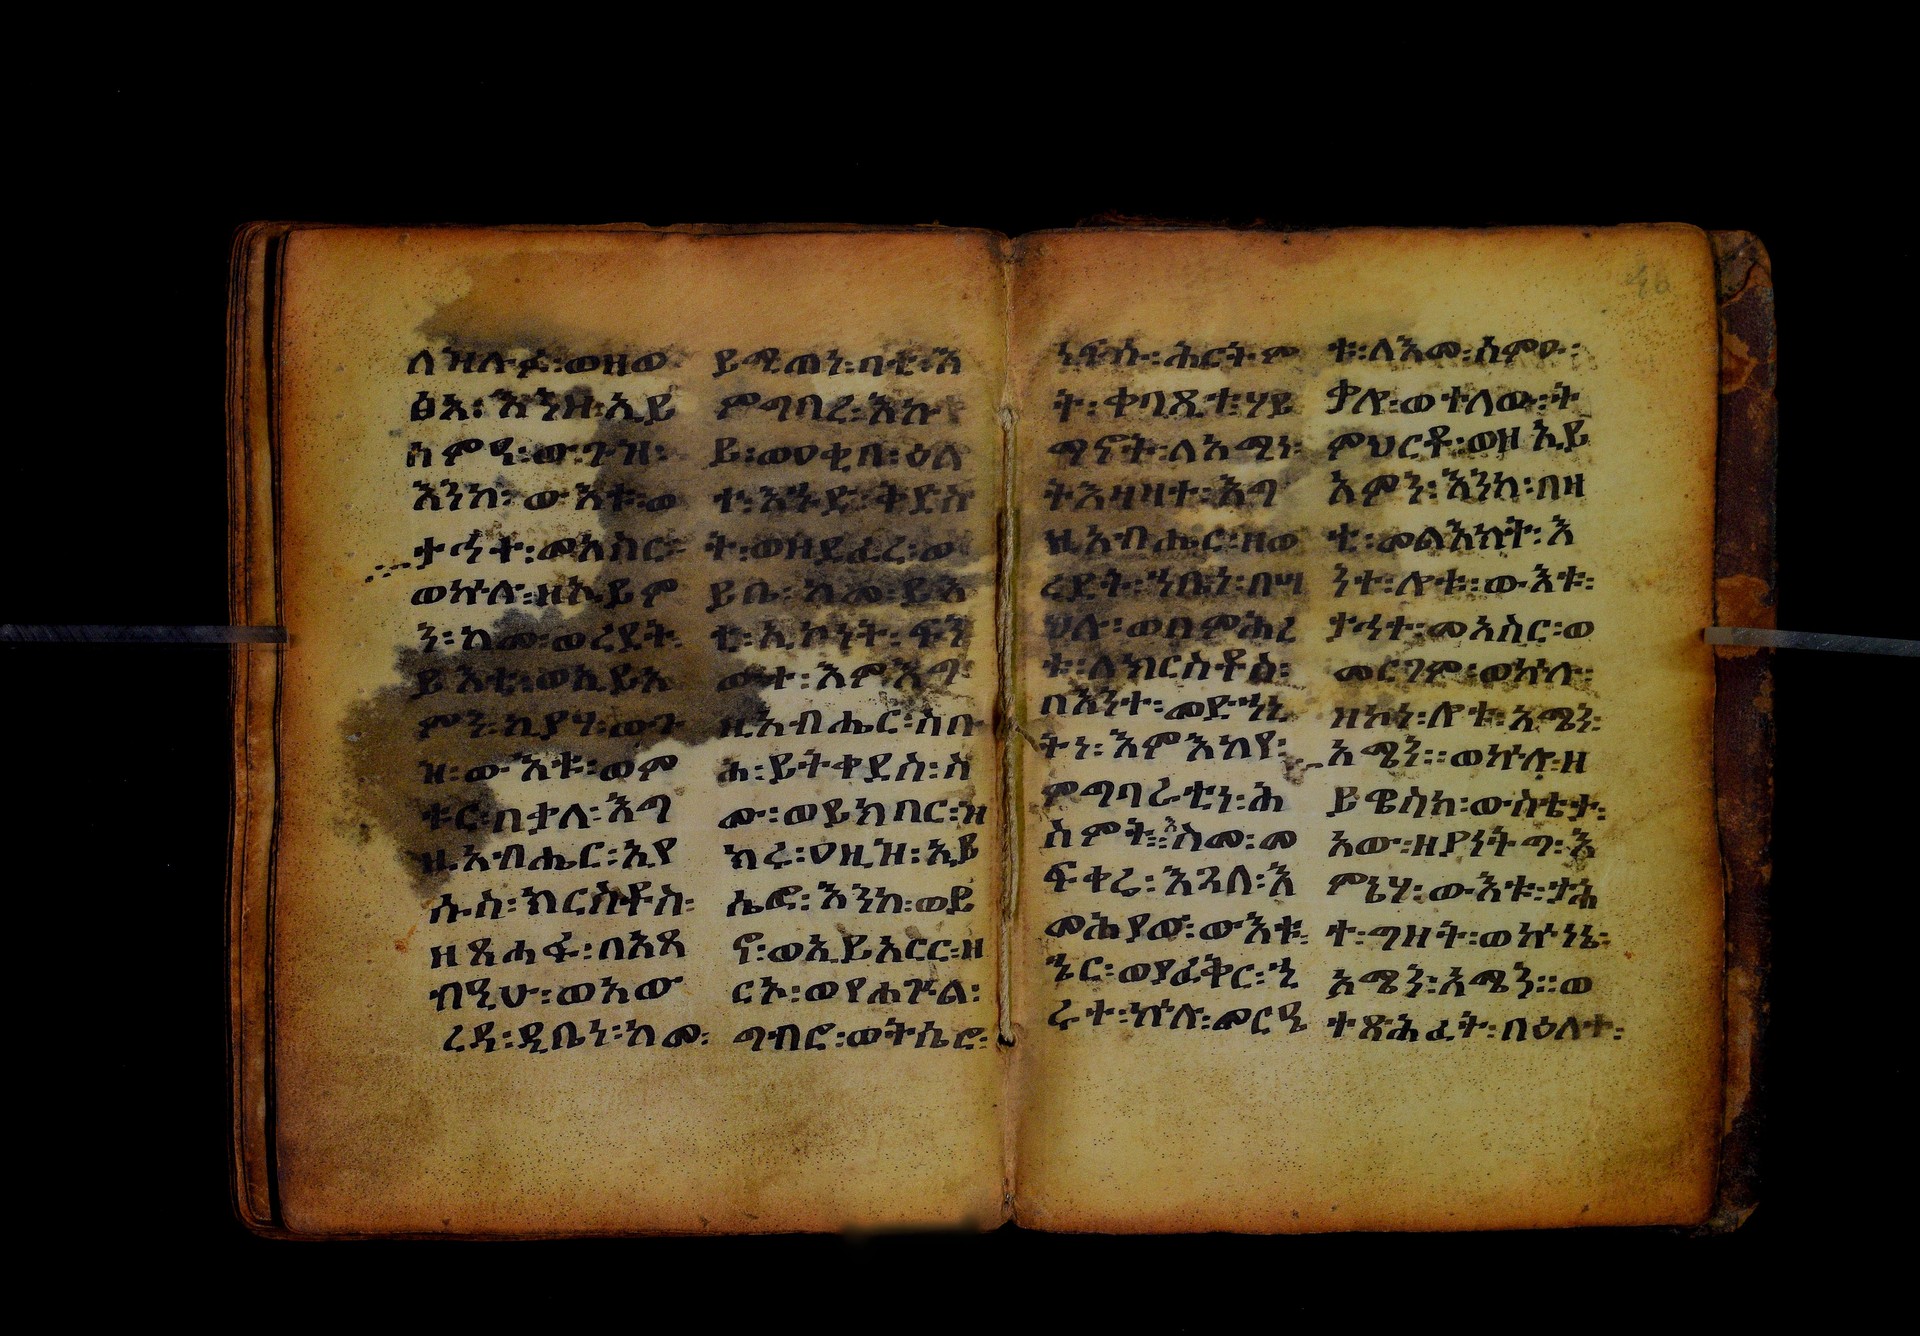 ለዝሉፉ፡ወዘወ
ፅአ፡እንዘ፡ኢይ
አምን፡ውጉዝ፡
እንከ፡ውእቱ፡ወ
ታኅተ፡መአስር፡
ወኵሉ፡ዘኢይም
ን፡ከመ፡ወረደት፡
ይእቲ፡ወኢይአ
ምን፡ኪያሃ፡ውጉ
ዝ፡ውእቱ፡ወም
ቱር፡በቃለ፡እግ
ዚአብሔር፡ኢየ
ሱስ፡ክርስቶስ፡
ዘጸሐፋ፡በእጸ
ብዒሁ፡ወአው
ረዳ፡ዲቤነ፡ከመ፡
ይሚጠነ፡ባቲ፡እ
ምግባረ፡እኩ
ይ፡ወዐቂበ፡ዕለ
ተ፡እኁድ፡ቅድስ
ት፡ወዘይፈረ፡ወ
ይቤ፡ከመ፡ይእ
ቲ፡ኢኮነት፡ፍን
ውተ፡እምእግ
ዚአብሔር፡ስቡ
ሕ፡ይትቀደስ፡ስ
ሙ፡ወይክባር፡ዝ
ክሩ፡ዐዚዝ፡ኢይ
ሌፎ፡እንከ፡ወይ
ኖ፡ወኢይአርር፡ዘ
ርኡ፡ወየሐጕል፡
ግብሮ፡ወትሴሮ፡
ነፍሱ፡ሕርትም
ት፡ቀባጺተ፡ሃይ
ማኖት፡ለአማነ፡
ትእዛዛተ፡እግ
ዚአብሔር፡ዘወ
ረደት፡ኀቤነ፡በሣ
ህሉ፡ወበምሕረ
ቱ፡ለክርስቶስ፡
በእንተ፡መድኀኒ
ትነ፡እምእከየ፡
ምግባራቲነ፡ሕ
ስምት፡እስመ፡መ
ፍቀሬ፡እጓለ፡እ
መሕያው፡ውእቱ፡
ኄር፡ወያፈቅር፡ኂ
ሩተ፡ኵሉ፡መርዔ
ቱ፡ለእመ፡ሰምዑ፡
ቃሎ፡ወተለው፡ት
ምህርቶ፡ወዘኢይ
አምን፡እንከ፡በዛ
ቲ፡መልእክት፡እ
ንተ፡ሎቱ፡ውእቱ፡
ታኅተ፡መአስር፡ወ
መርገም፡ወኵሉ፡
ዘኮነ፡ሎቱ፡አሜን፡
አሜን፡፡ወኵሉ፡ዘ
ይዌስከ፡ውስቴታ፡
አው፡ዘያነትግ፡እ
ምኔሃ፡ውእቱ፡ታሕ
ተ፡ግዘት፡ወኵነኔ፡
አሜን፡አሜን፡፡ወ
ተጽሕፈት፡በዕለተ፡